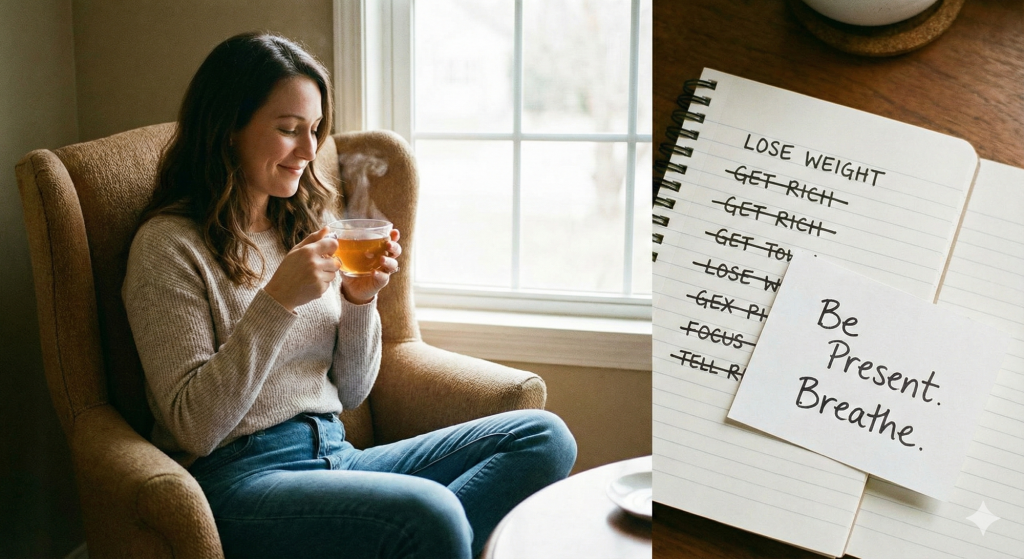 LOSE WEIGHT
GET RICH
GET RICH
GET TOU
LOSE W
GEX PI
FOCUS
TELL R
Be
Present.
Breathe.